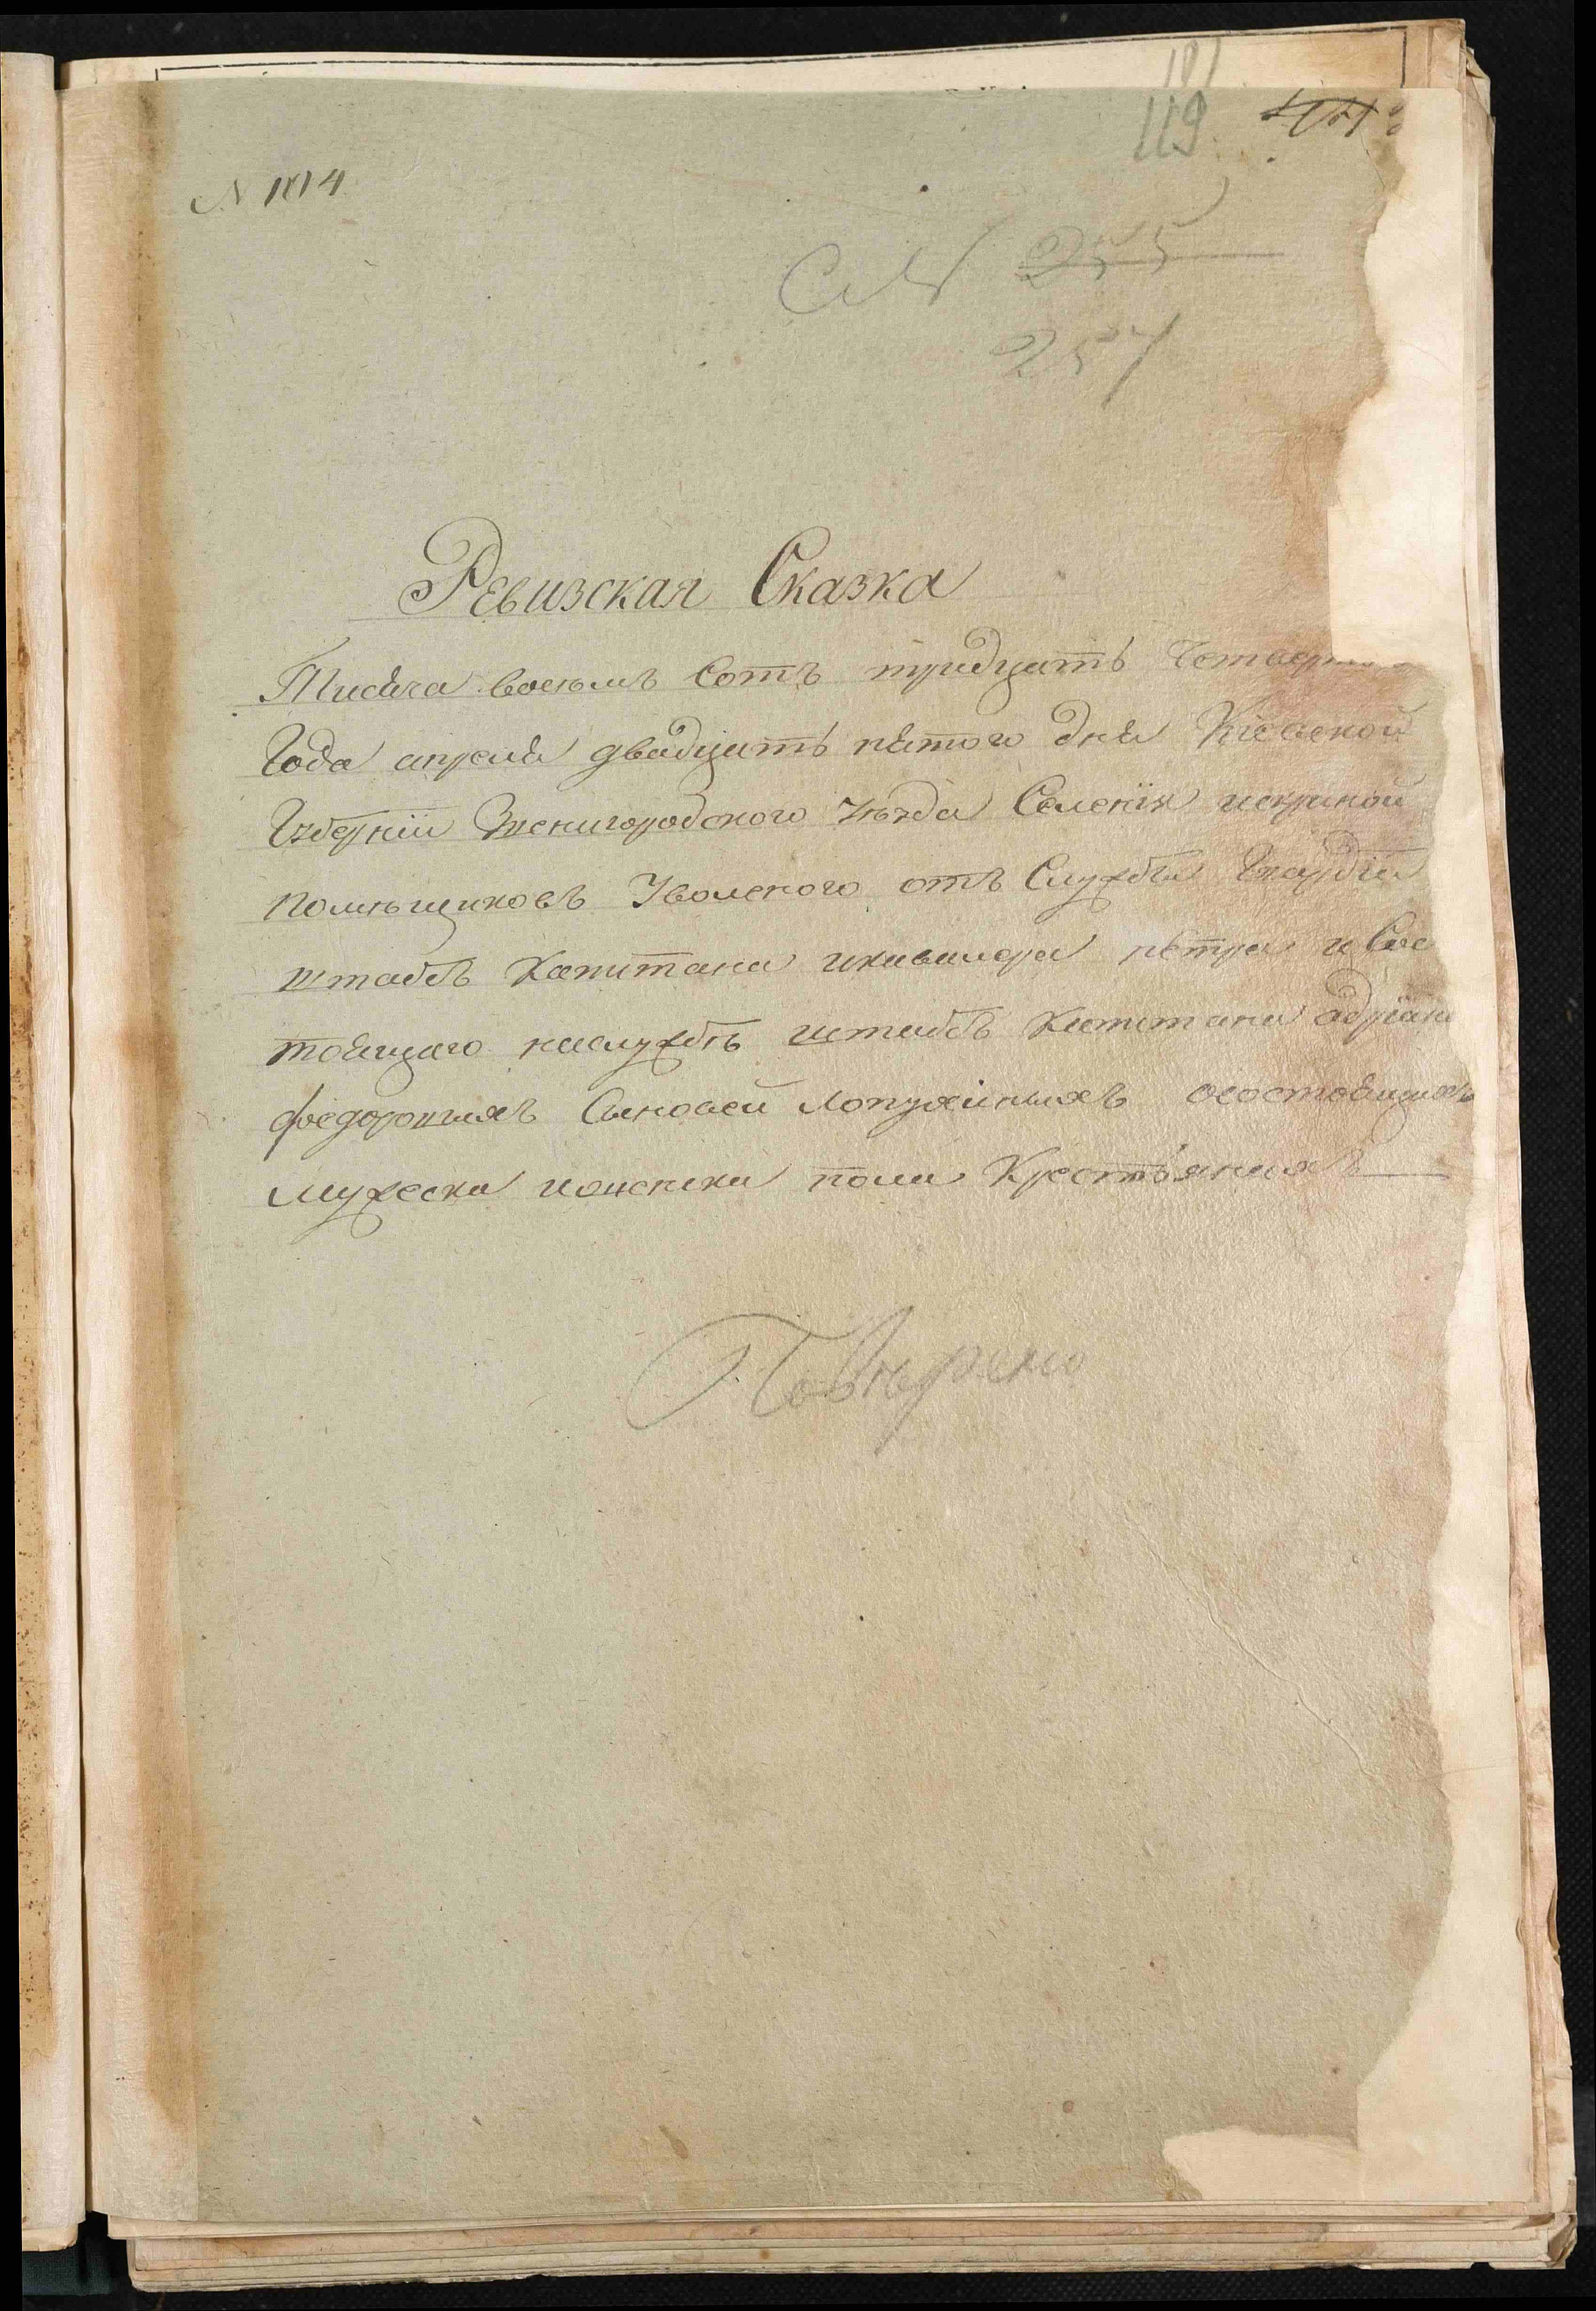 101
119
N 1014
N 255
257
Ревизская Сказка
Тисяча восемъ Сотъ тридцать Четверто
Года апреля двадцять пятого дня Кіевской
Губерніи Звенигородского Уѣзда Селенія искриной
помѣщиковъ Уволеного отъ Службы Гвардіи
штабъ Капитана икавалера петра и Сос
тоящаго наслужбѣ штабъ Капитана адріана
федоровыхъ Сыновей Лопухиныхъ осостоящихъ
мужеска иженска пола Крестьянахъ
Повѣрено